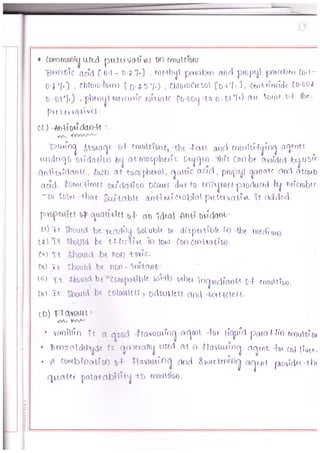 * Commonly used preservatives on emulsions
Benzoic acid [0.1 - 0.2 %], methyl paraben and propyl paraben [0.1-
0.2 %], chloroform [0.25 %], chlorocresol [0.1 %], cetrimide [0.002
0.01%], phenyl mercuric nitrate [0.004 to 0.01%] are some of the
preservatives
(C) - Antioxidants :
During storage of emulsions, the fats and emulsifying agents
undergo oxidation by atmospheric oxygen. This can be avoided by use
antioxidants, such as tocopherol, gallic acid, propyl gallate and ascorb
acid. Sometimes oxidation occurs due to enzymes produced by microbes
To solve that suitable antimicrobial preservative is added.
properties of qualities of an ideal Anti oxidant-
(1) It should be readily soluble or dispersible in the medium
(2) It should be effective in low concentration
It should be non toxic.
It should be non - irritant-
It should be compatible with other ingredients of emulsion.
(6) It should be colourless, odourless and tasteless.
(D) Flavours :
• vanillin is a good flavouring agent for liquid paraffin emulsion
• Benzaldehyde is generally used as a flavouring agent for cod liver.
• A combination of flavouring and sweetening agent provides the
greater palatability to emulsion.